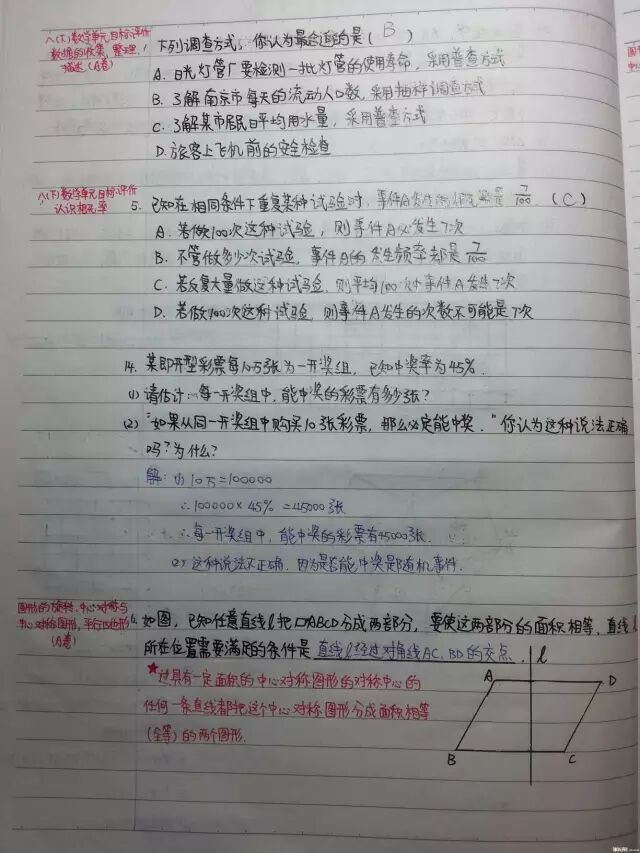 八(下)数学单元目标评价
数据的收集、整理、
描述(A卷)
下列调查方式,你认为最合适的是( B )
A. 日光灯管厂要检测一批灯管的使用寿命,采用普查方式
B. 了解南京市每天的流动人口数,采用抽样调查方式
C. 了解某市居民日平均用水量,采用普查方式
D. 旅客上飞机前的安全检查
八(下)数学单元目标评价
认识概率
5. 已知在相同条件下重复某种试验时,事件A发生的概率是 7/100 . (C)
A. 若做100次这种试验,则事件A必发生7次
B. 不管做多少次试验,事件A的发生频率都是 7/100
C. 若反复大量做这种试验,则平均100次中事件A发生7次
D. 若做100次这种试验,则事件A发生的次数不可能是7次
14. 某即开型彩票每10万张为一开奖组,已知中奖率为45%.
(1) 请估计:每一开奖组中,能中奖的彩票有多少张?
(2) "如果从同一开奖组中购买10张彩票,那么必定能中奖."你认为这种说法正确
吗?为什么?
解:(1) 10万=100000
∴100000×45% =45000张
∴每一开奖组中,能中奖的彩票有45000张.
(2) 这种说法不正确.因为是否能中奖是随机事件.
图形的旋转、中心对称与
中心对称图形、平行四边形
(A卷)
6. 如图,已知任意直线l把▱ABCD分成两部分,要使这两部分的面积相等,直线l
所在位置需要满足的条件是 直线l经过对角线AC、BD的交点.
★过具有一定面积的中心对称图形的对称中心的
任何一条直线都把这个中心对称图形分成面积相等
(全等)的两个图形.
l
A D
B C